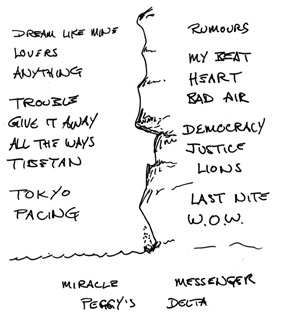 DREAM LIKE MINE
LOVERS
ANYTHING
TROUBLE
GIVE IT AWAY
ALL THE WAYS
TIBETAN
TOKYO
PACING
RUMOURS
MY BEAT
HEART
BAD AIR
DEMOCRACY
JUSTICE
LIONS
LAST NITE
W.O.W.
MIRACLE MESSENGER
PEGGY'S DELTA